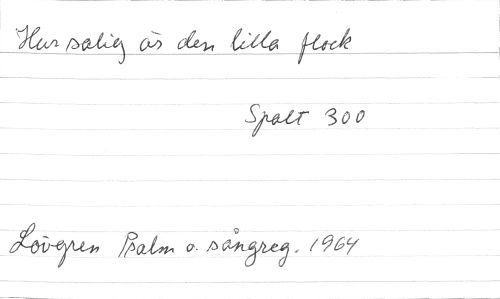 Hur salig är den lilla flock
Spalt 300
Lövgren Psalm o. sångreg. 1964